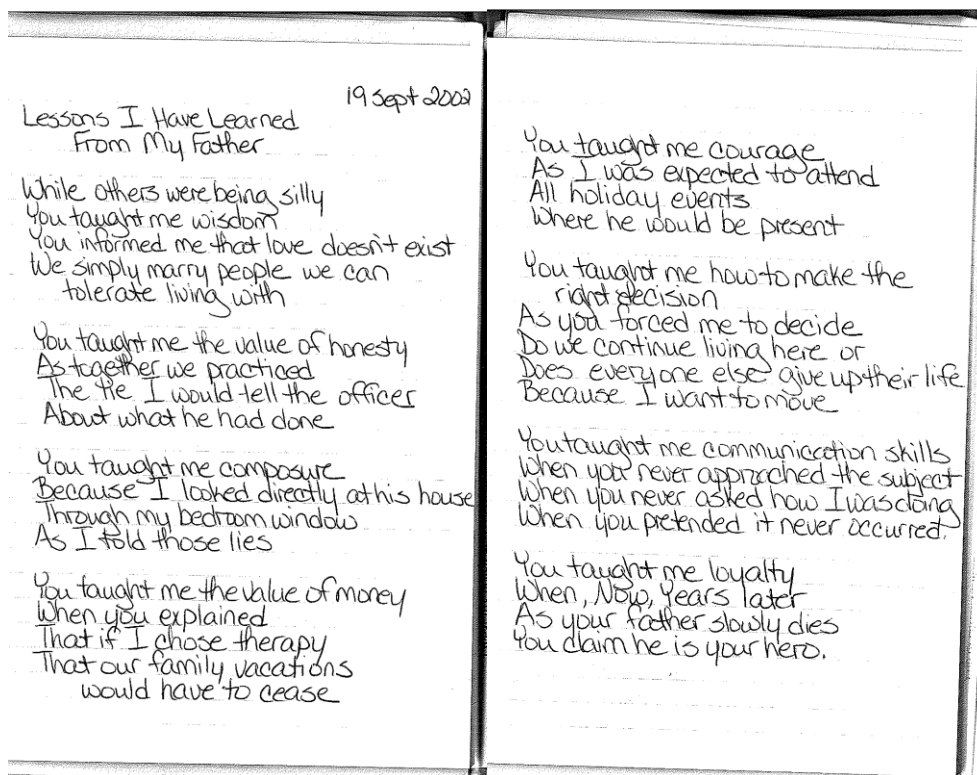 19 Sept 2002
Lessons I Have Learned
From My Father
While others were being silly
You taught me wisdom
You informed me that love doesn't exist
We simply marry people we can
tolerate living with
You taught me the value of honesty
As together we practiced
The lie I would tell the officer
About what he had done
You taught me composure
Because I looked directly at his house
Through my bedroom window
As I told those lies
You taught me the value of money
When you explained
That if I chose therapy
That our family vacations
would have to cease
You taught me courage
As I was expected to attend
All holiday events
Where he would be present
You taught me how to make the
right decision
As you forced me to decide
Do we continue living here or
Does everyone else give up their life
Because I want to move
You taught me communication skills
When you never approached the subject
When you never asked how I was doing
When you pretended it never occurred.
You taught me loyalty
When, Now, Years later
As your father slowly dies
You claim he is your hero.